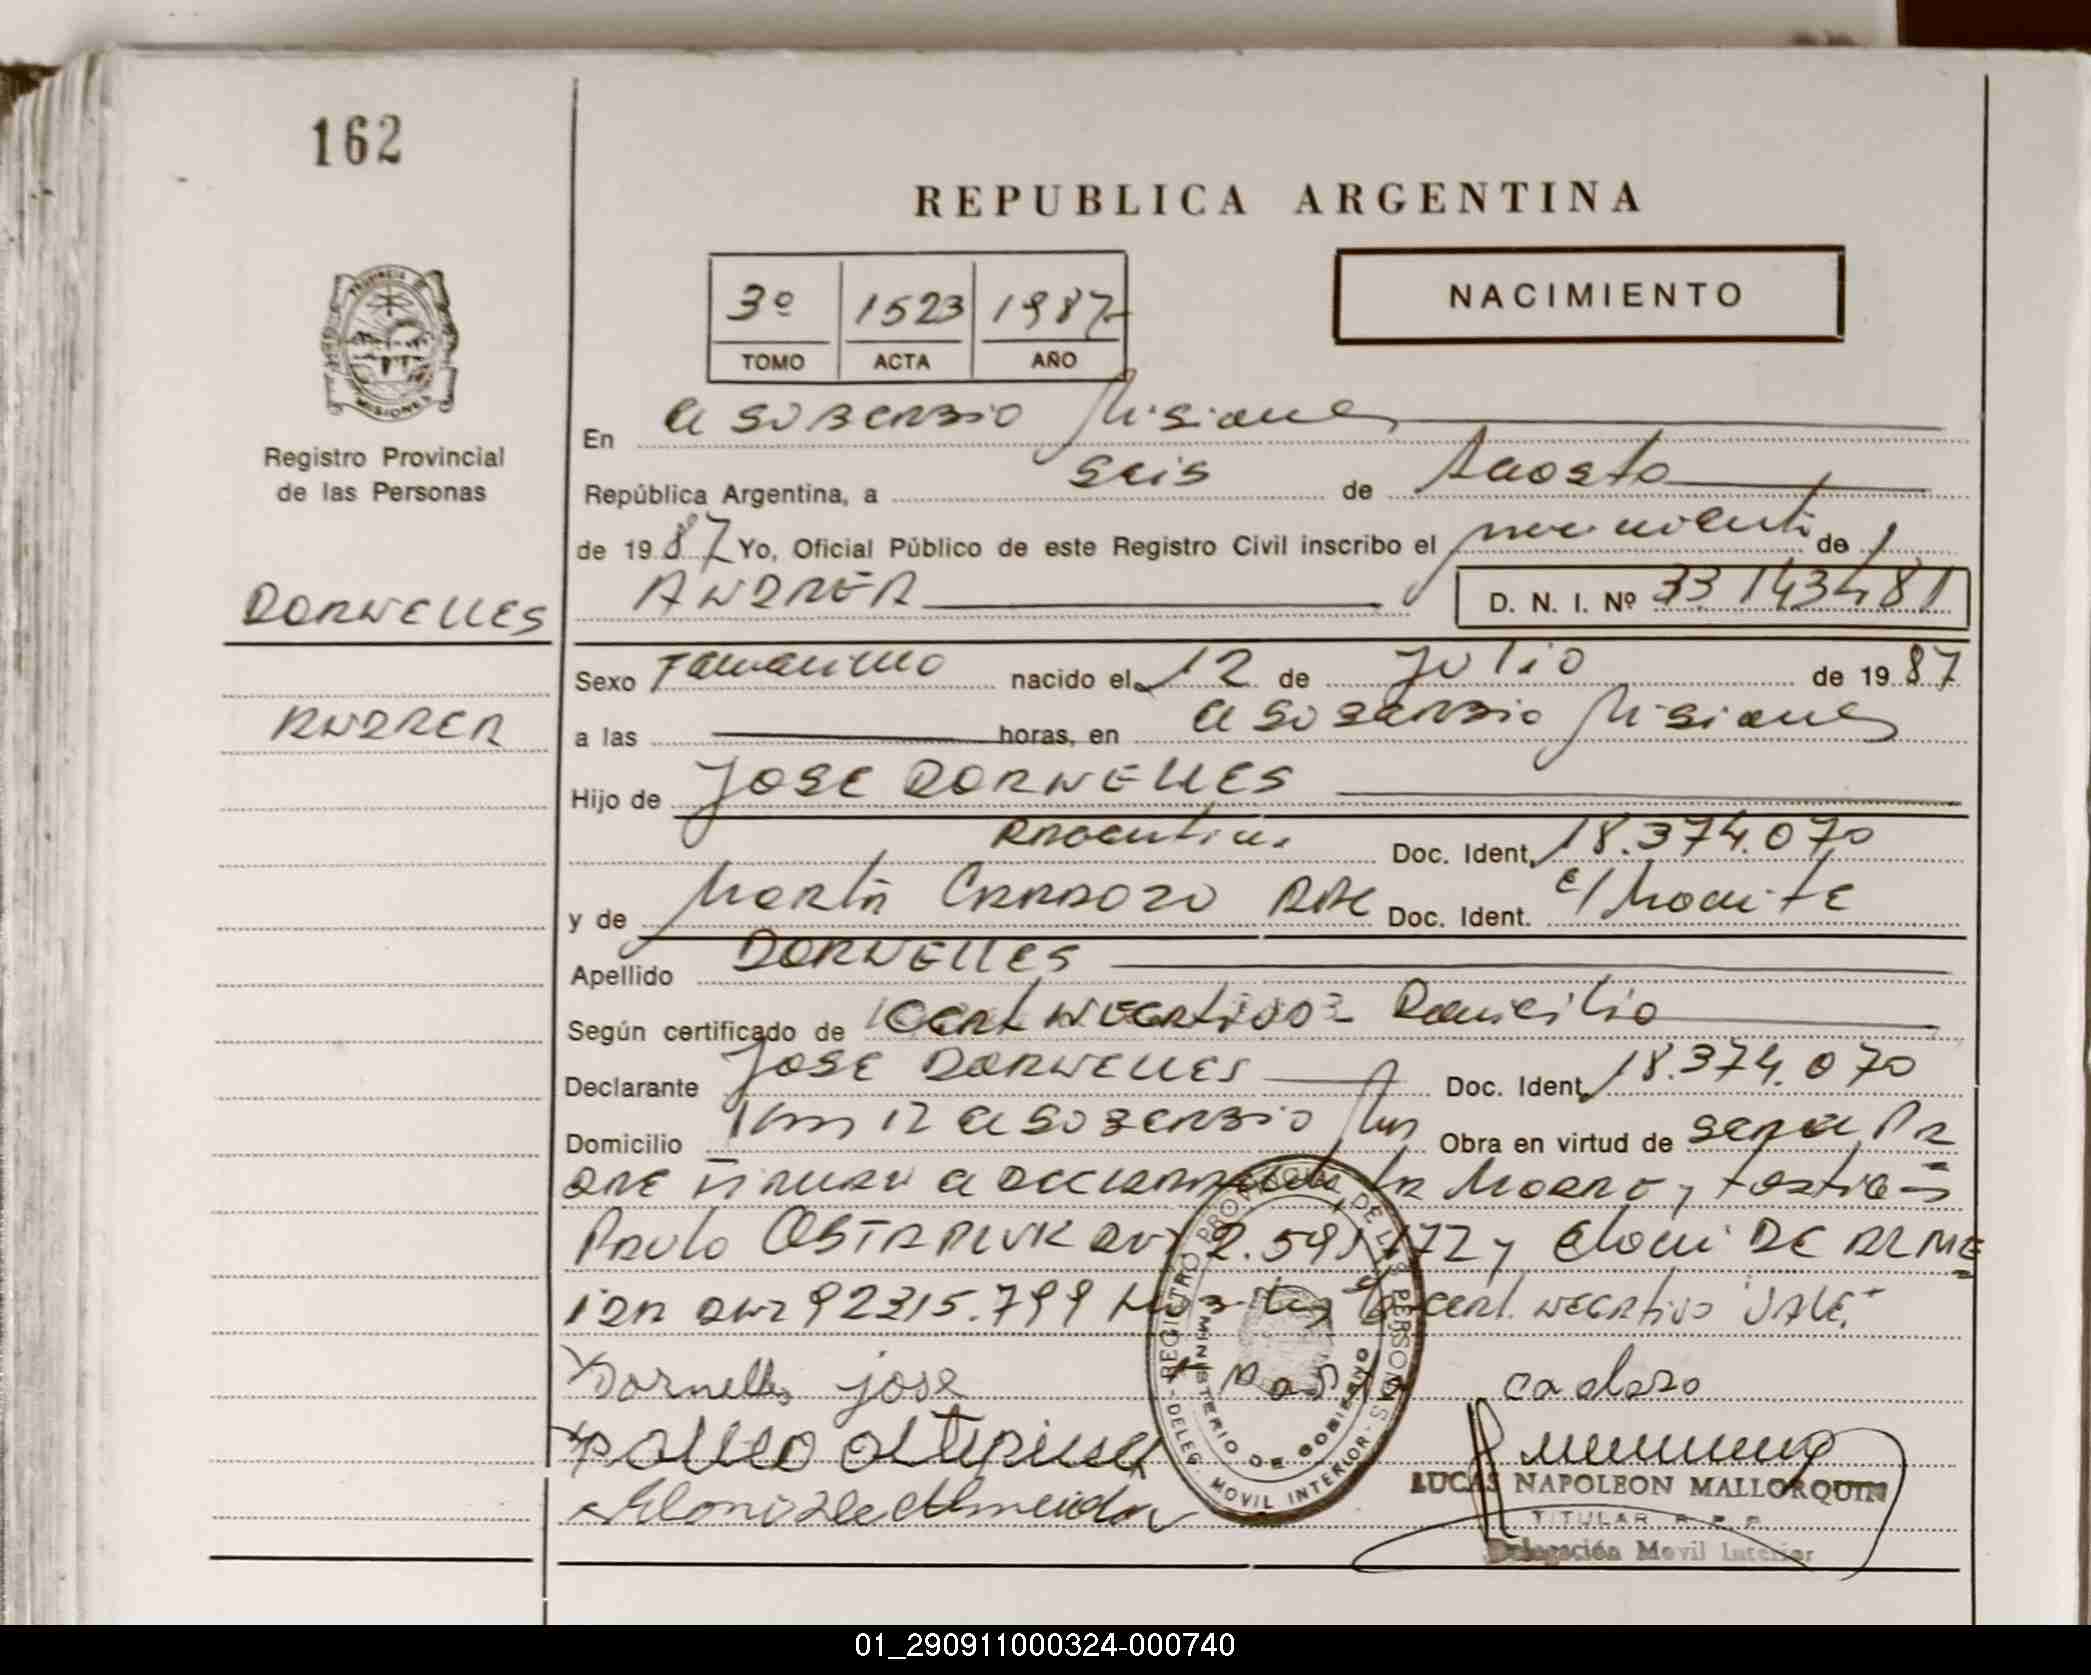 162
REPUBLICA ARGENTINA
3º 1523 1987
TOMO ACTA AÑO
NACIMIENTO
PROVINCIA DE MISIONES
Registro Provincial
de las Personas
En El SOBERBIO Misiones
República Argentina, a seis de Agosto
de 19 87 Yo, Oficial Público de este Registro Civil inscribo el nacimiento de
ANDREA D. N. I. Nº 33 143481
DORNELLES
Sexo Femenino nacido el 12 de Julio de 19 87
ANDREA
a las horas, en El SOBERBIO Misiones
Hijo de JOSE DORNELLES
Argentina Doc. Ident. 18.374.070
y de Marta CARDOZO Doc. Ident.
Apellido DORNELLES
Según certificado de Cert NEGATIVO Domicilio
Declarante JOSE DORNELLES Doc. Ident. 18.374.070
Domicilio Km 12 El SOBERBIO Mns Obra en virtud de ser el PA
DRE El DECLARANTE LA MADRE y testigos
PAULO 2.591.172 y Eloni DE ALME
IDA DNI 92315.799 CERT. NEGATIVO VALE.
Dornelles jose Marta cadozo
Eloni de Almeida
REGISTRO PROVINCIAL DE LAS PERSONAS
MINISTERIO DE GOBIERNO
DELEG. MOVIL INTERIOR
LUCAS NAPOLEON MALLORQUIN
TITULAR R. P. P.
Delegación Movil Interior
01_290911000324-000740